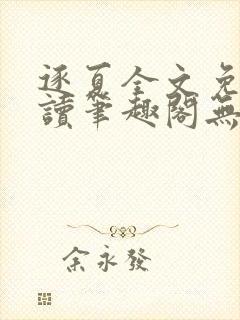 逐夏全文免
讀筆趣閣無
余永發